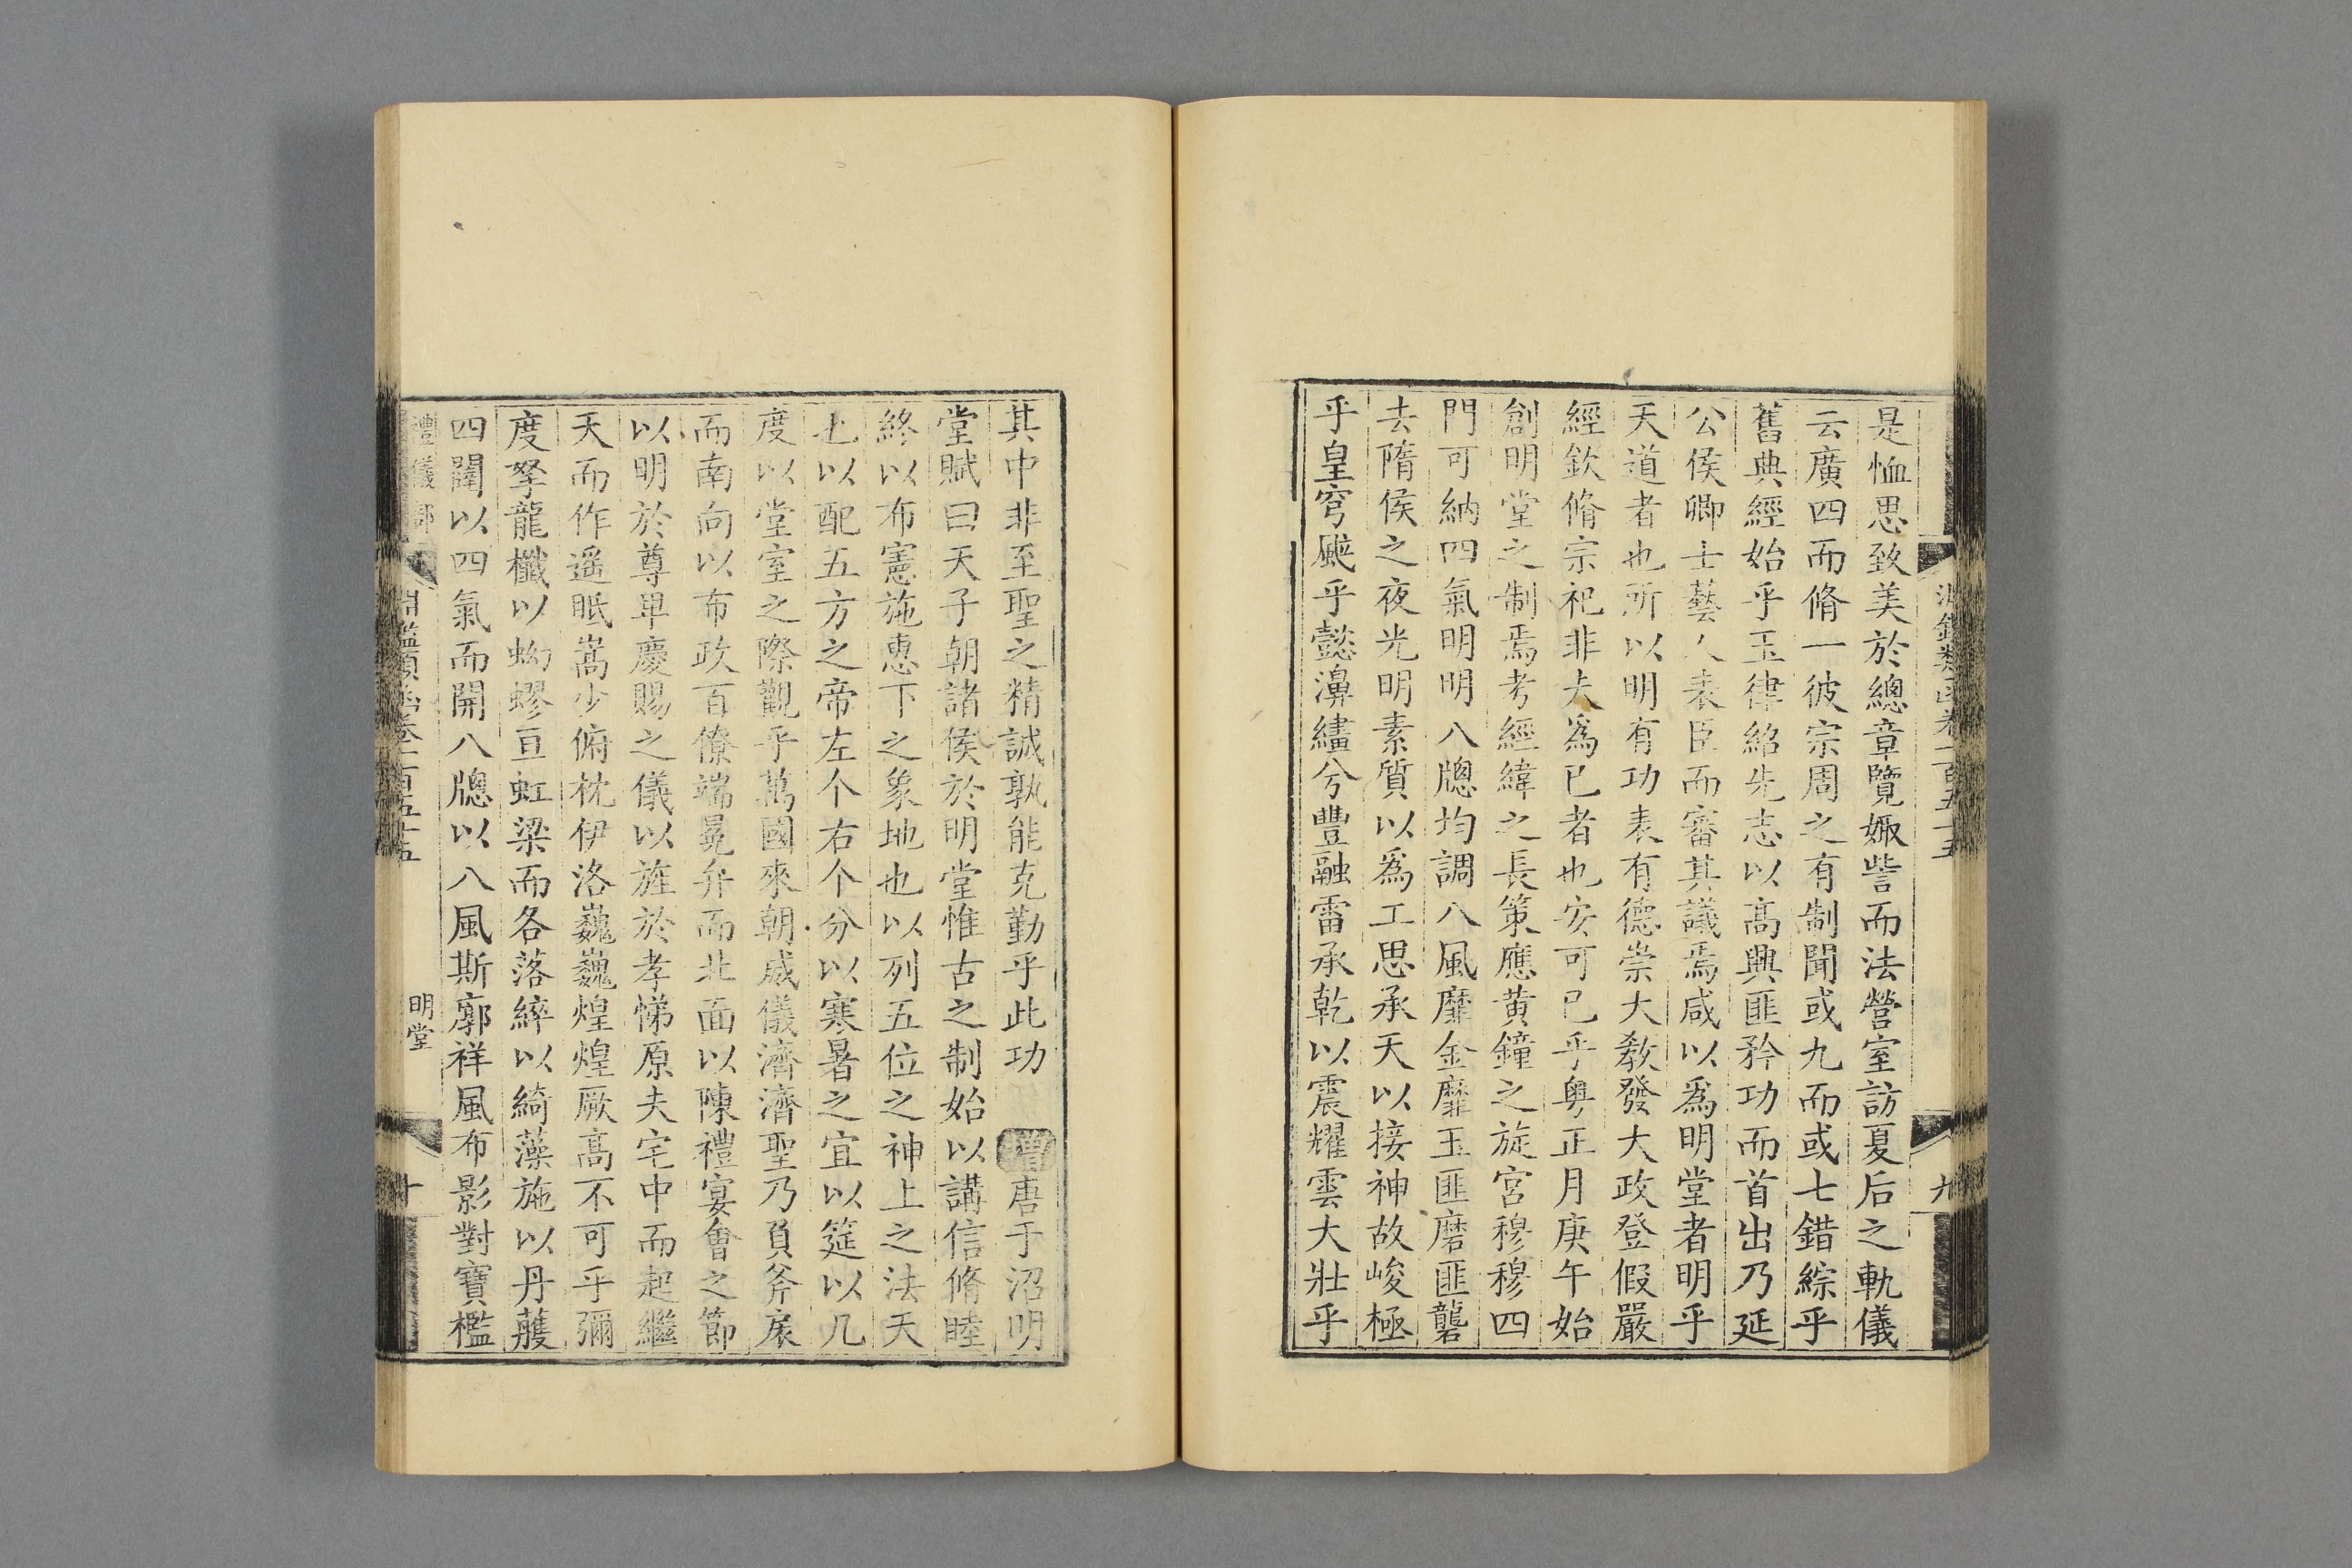 是恤思致美於總章覽娵訾而法營室訪夏后之軌儀
云廣四而脩一彼宗周之有制聞或九而或七錯綜乎
舊典經始乎玉律紹先志以高興匪矜功而首出乃延
公侯卿士藝人表臣而審其議焉咸以爲明堂者明乎
天道者也所以明有功表有德崇大教發大政登假嚴
經欽脩宗祀非夫爲已者也安可已乎粤正月庚午始
創明堂之制焉考經緯之長策應黄鐘之旋宮穆穆四
門可納四氣明明八牕均調八風靡金靡玉匪磨匪礱
去隋侯之夜光明素質以爲工思承天以接神故峻極
乎皇穹颰乎懿濞繣兮豐融雷承乾以震耀雲大壯乎
其中非至聖之精誠孰能克勤乎此功 增唐于沼明
堂賦曰天子朝諸侯於明堂惟古之制始以講信脩睦
終以布憲施惠下之象地也以列五位之神上之法天
也以配五方之帝左个右个分以寒暑之宜以筵以几
度以堂室之際觀乎萬國來朝威儀濟濟聖乃負斧扆
而南向以布政百僚端冕弁而北面以陳禮宴會之節
以明於尊卑慶賜之儀以旌於孝悌原夫宅中而起繼
天而作遥眂嵩少俯枕伊洛巍巍煌煌厥高不可乎彌
度拏龍櫼以蚴蟉亘虹梁而各落綷以綺藻施以丹雘
四闥以四氣而開八牕以八風斯廓祥風布影對寶檻
禮儀部
淵鑑類函卷一百五十五
明堂
十